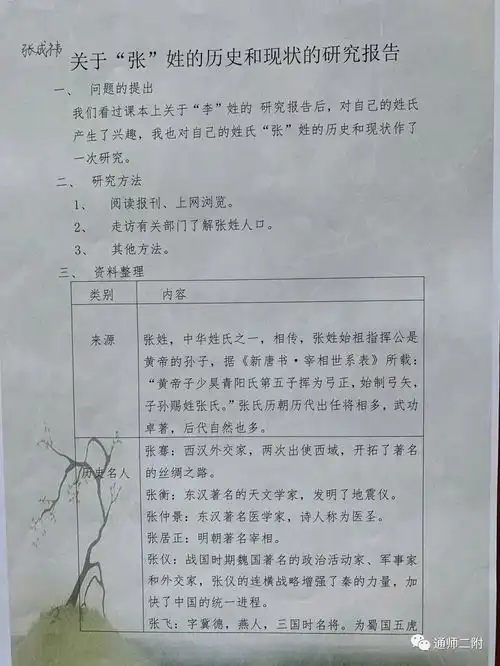 张成祎
关于“张”姓的历史和现状的研究报告
一、 问题的提出
我们看过课本上关于“李”姓的 研究报告后，对自己的姓氏
产生了兴趣，我也对自己的姓氏“张”姓的历史和现状作了
一次研究。
二、 研究方法
1、 阅读报刊、上网浏览。
2、 走访有关部门了解张姓人口。
3、 其他方法。
三、 资料整理
类别 内容
来源 张姓，中华姓氏之一，相传，张姓始祖指挥公是
黄帝的孙子，据《新唐书·宰相世系表》所载：
“黄帝子少昊青阳氏第五子挥为弓正，始制弓矢，
子孙赐姓张氏。”张氏历朝历代出任将相多，武功
卓著，后代自然也多。
历史名人 张骞：西汉外交家，两次出使西域，开拓了著名
的丝绸之路。
张衡：东汉著名的天文学家，发明了地震仪。
张仲景：东汉著名医学家，诗人称为医圣。
张居正：明朝著名宰相。
张仪：战国时期魏国著名的政治活动家、军事家
和外交家，张仪的连横战略增强了秦的力量，加
快了中国的统一进程。
张飞：字冀德，燕人，三国时名将。为蜀国五虎
通师二附